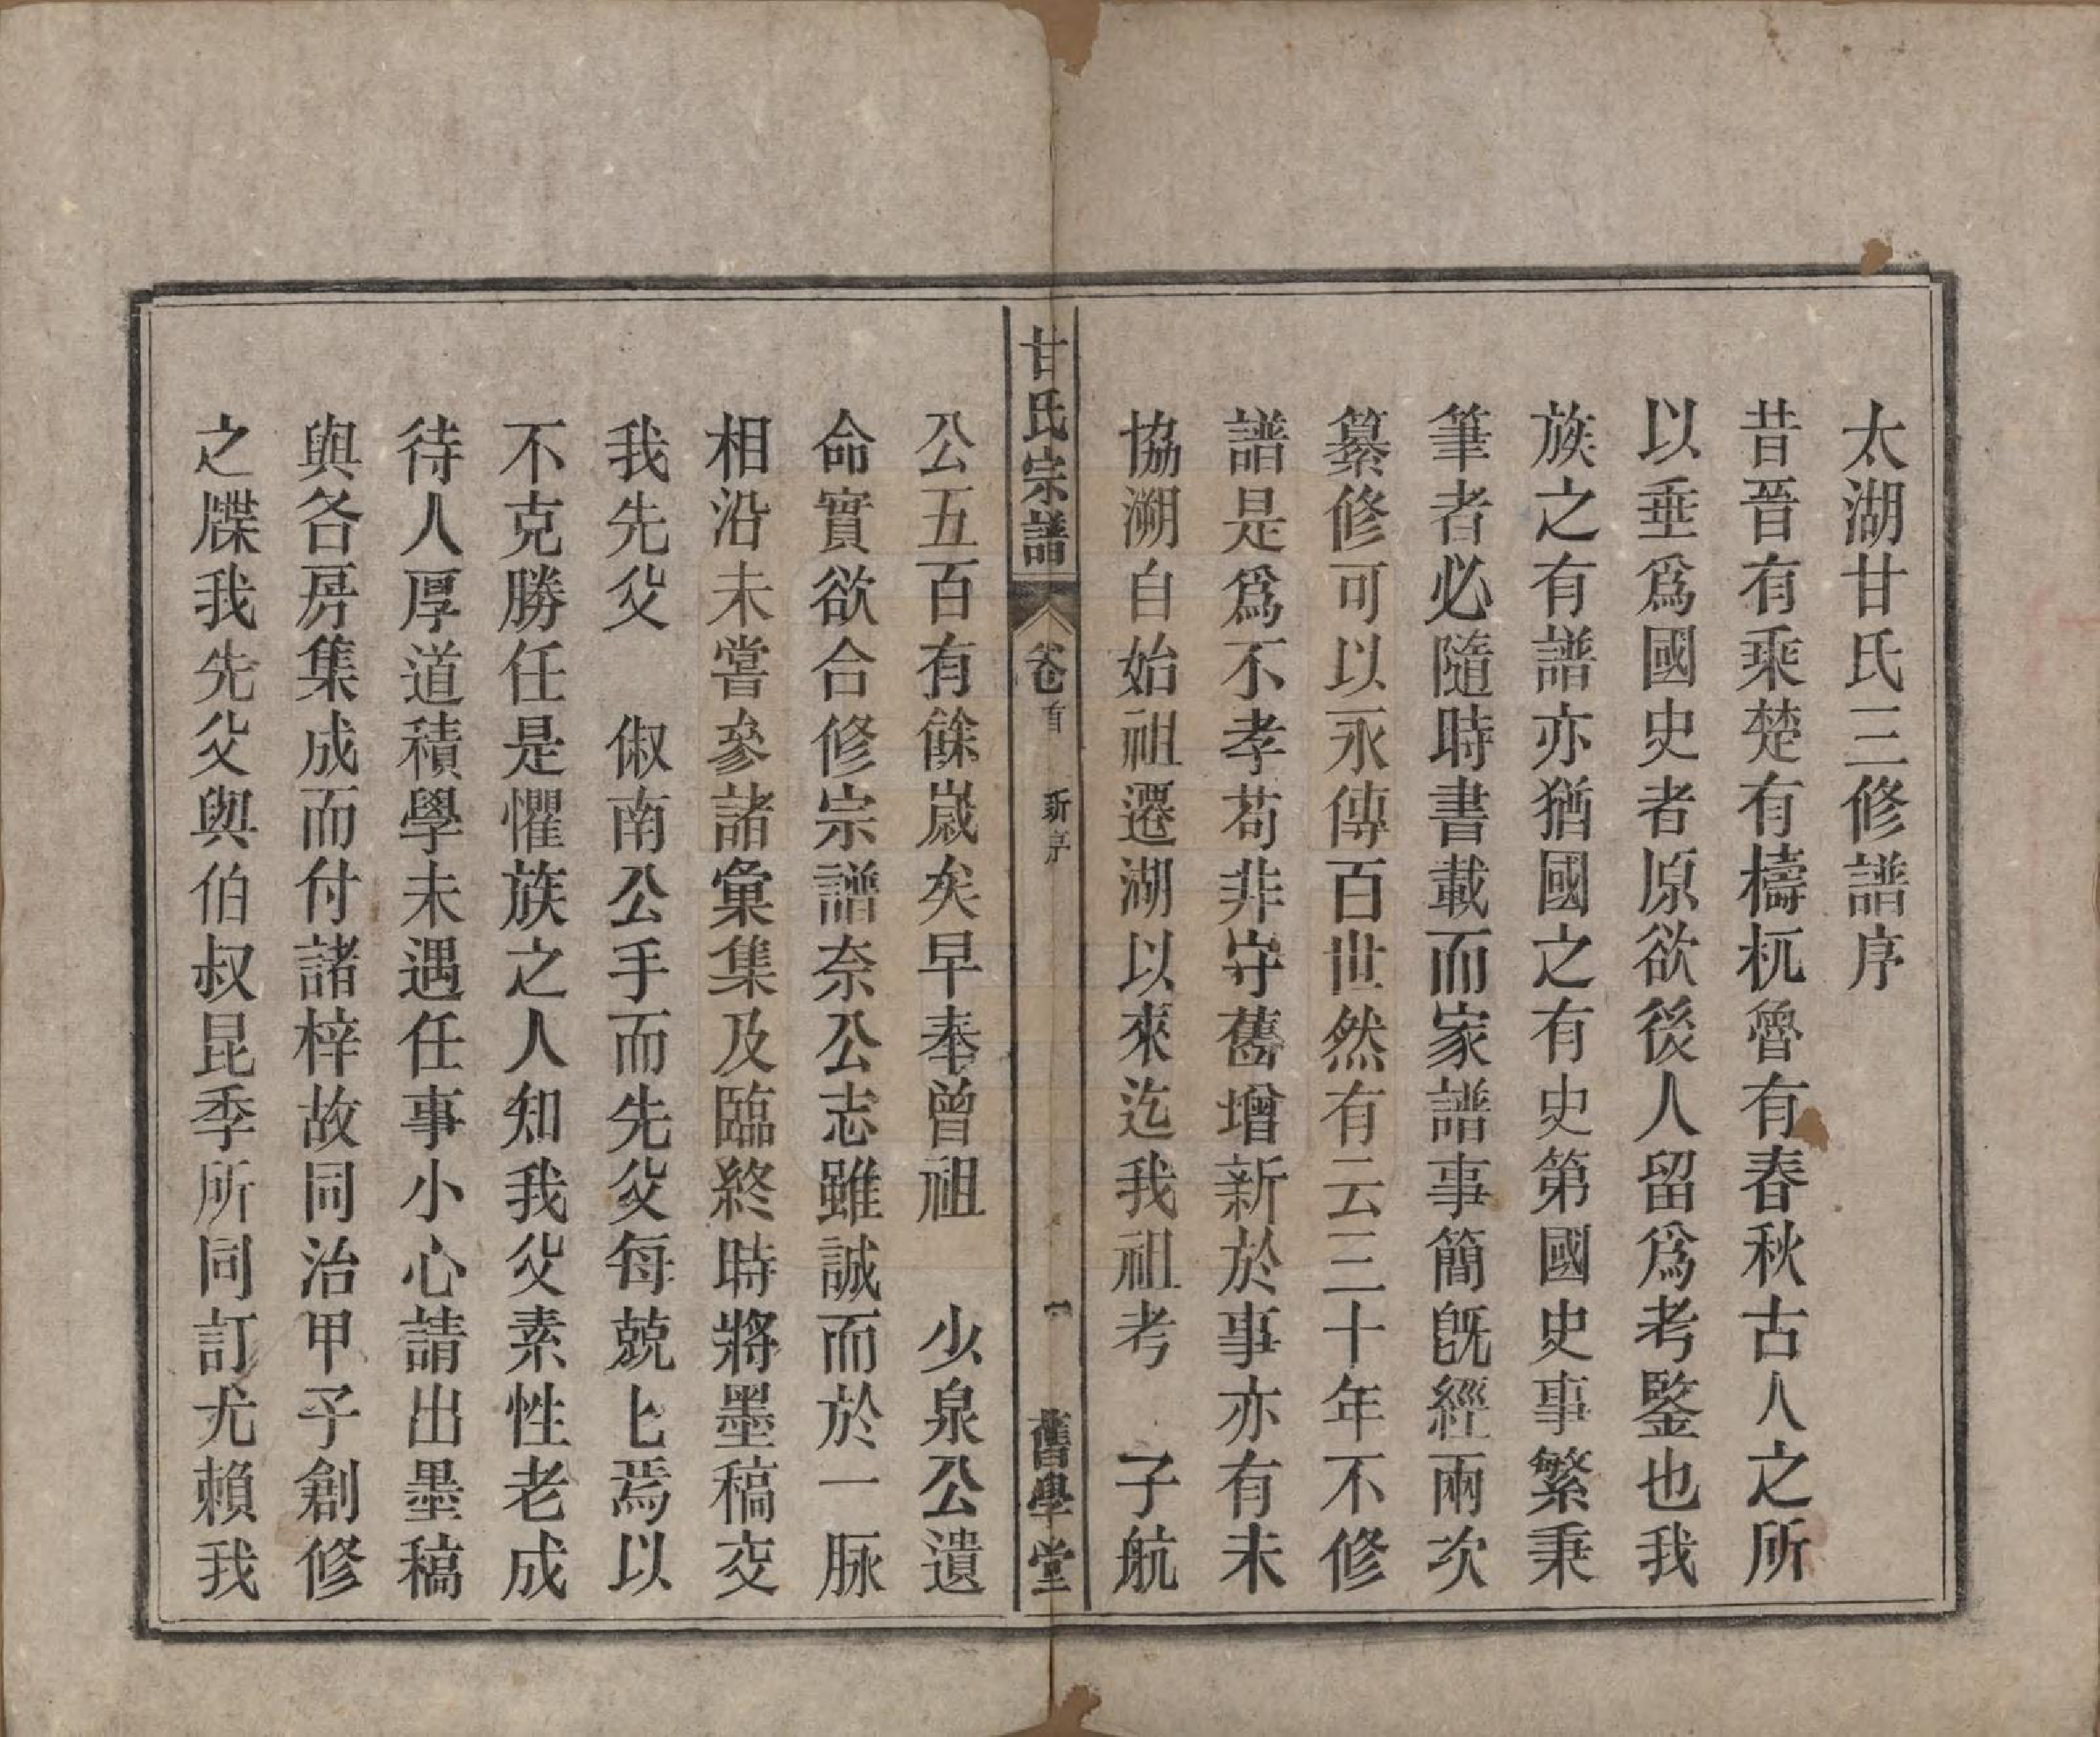 太湖甘氏三修譜序
昔晉有乘楚有檮杌魯有春秋古人之所
以垂爲國史者原欲後人留爲考鑒也我
族之有譜亦猶國之有史第國史事繁秉
筆者必隨時書載而家譜事簡旣經兩次
纂修可以永傳百世然有云三十年不修
譜是爲不孝苟非守舊增新於事亦有未
協溯自始祖遷湖以來迄我祖考　子航
甘氏宗譜　卷首　新序　舊學堂
公五百有餘嵗矣早奉曾祖　少泉公遺
命實欲合修宗譜奈公志雖誠而於一脉
相沿未嘗參諸彙集及臨終時將墨稿交
我先父　俶南公手而先父每兢匕焉以
不克勝任是懼族之人知我父素性老成
待人厚道積學未遇任事小心請出墨稿
與各房集成而付諸梓故同治甲子創修
之牒我先父與伯叔昆季所同訂尤賴我